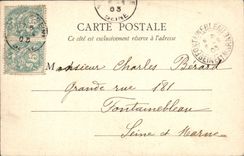 03
SEINE
CARTE POSTALE
Ce côté est exclusivement réservé à l'adresse
Monsieur Charles Bérard
Grande rue 181
Fontainebleau
Seine et Marne